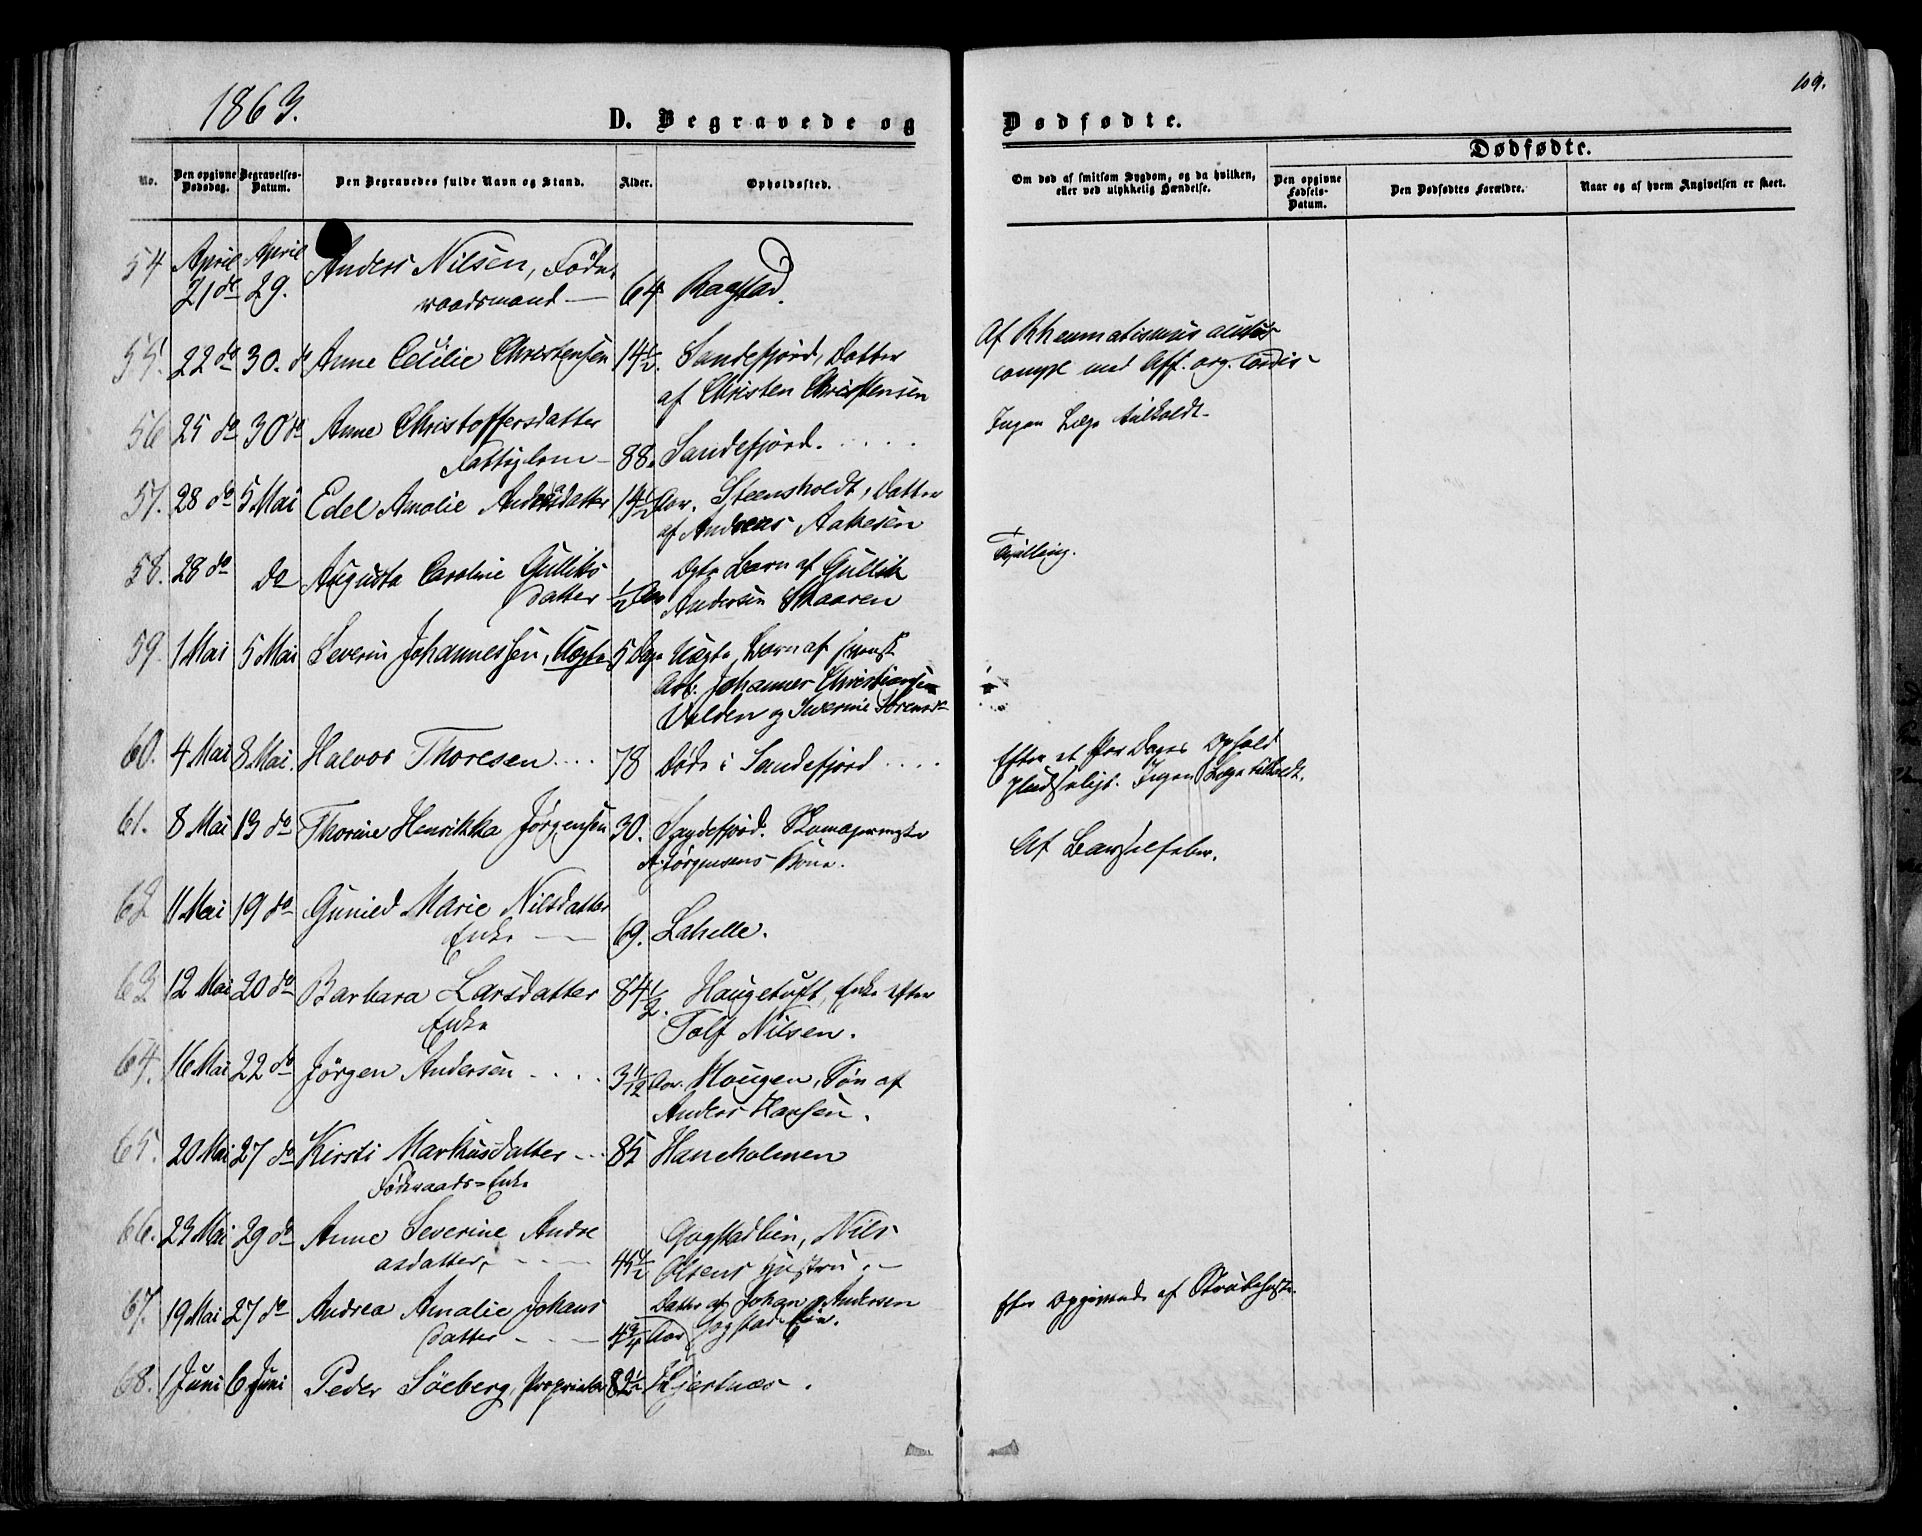 1863.
D. Begravede og
Dødfødte.
109.
No.
Den opgivne Dødsdag.
Begravelses-Datum.
Den Begravedes fulde Navn og Stand.
Alder.
Opholdssted.
Om død af smitsom Sygdom, og da hvilken, eller ved ulykkelig Hændelse.
Dødfødte.
Den opgivne Fødsels-Datum.
Den Dødfødtes Forældre.
Naar og af hvem Angivelsen er skeet.
54 April 21 do April 29. Anders Nilsen, Føde-
raadsmand 64
55. 22 do 30. do Anne Cecilie Christensen 14 1/2. Sandefjord, Datter
af Christen Christensen
Af Rheumatismus
compl med Aff. org. cordis
56 25 do 30 do Anne Christoffersdatter
Fattiglem 88. Sandefjord.
Ingen Læge tilkaldt.
57. 28 do 5 Mai Edel Amalie Andreasdatter 14 1/2 Aar. Steensholdt, Datter
af Andreas Aakesen
58. 28 do do Augusta Caroline Gulliks
datter 1/2 Aar Ægte Barn af Gullik
Andersen Skaaren
Tjølling.
59. 1 Mai 5 Mai Severin Johannessen, Uægte 5 Dage Uægte Barn af svensk
Arb. Johannes Christiansen
Valden og Severine Sørensd
60. 4 Mai 8 Mai. Halvor Thoresen 78 Døde i Sandefjord
Efter et Par Dages Ophold
pludseligt. Ingen Læge tilkaldt.
61. 8 Mai 13 do Thorine Henrikka Jørgensen 30. Sandefjord. Skomagermester
A. Jørgensens Kone.
Af Barselfeber.
62 11 Mai 19 do Gunild Marie Nilsdatter
Enke 69. Lahelle.
63 12 Mai 20 do Barbara Larsdatter 84 1/2. Haugetuft, Enke efter
Enke Tolf Nilsen.
64. 16 Mai 22 do Jørgen Andersen 3 11/12 Aar. Hougen, Søn af
Anders Hansen.
65. 20 Mai 27 do Kirsti Markusdatter 85 Haneholmen
Føderaads-Enke
66. 23 Mai 29 do Anne Severine Andre
asdatter, 45 1/2 Gogstadlien, Nils
Olsens Hustru
67. 19 Mai 27 do Andrea Amalie Johans
datter 4 3/4 Aar Datter af Johan Andersen
Gogstadlien.
Efter Opgivende af Strubehoste.
68. 1 Juni 6 Juni Peder Søeberg, Proprietær 82 1/2 Hjertnæs.